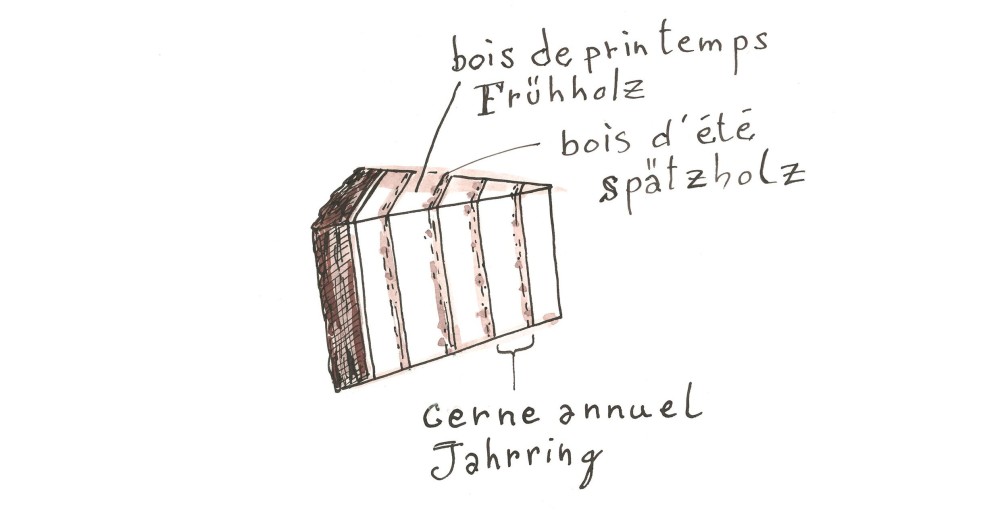 bois de printemps
Frühholz
bois d'été
spätzholz
cerne annuel
Jahrring